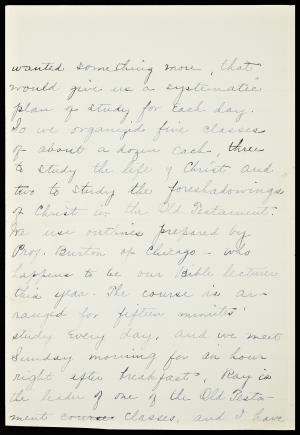 wanted something more, that
would give us a systematic
plan of study for each day.
So we organized five classes
of about a dozen each, three
to study the life of Christ and
two to study the foreshadowings
of Christ in the Old Testament.
We use outlines prepared by
Prof. Burton of Chicago - who
happens to be our Bible lecturer
this year. The course is ar-
ranged for fifteen minutes'
study every day, and we meet
Sunday morning for an hour
right after breakfast. Ray is
the leader of one of the Old Testa-
ment course classes, and I have